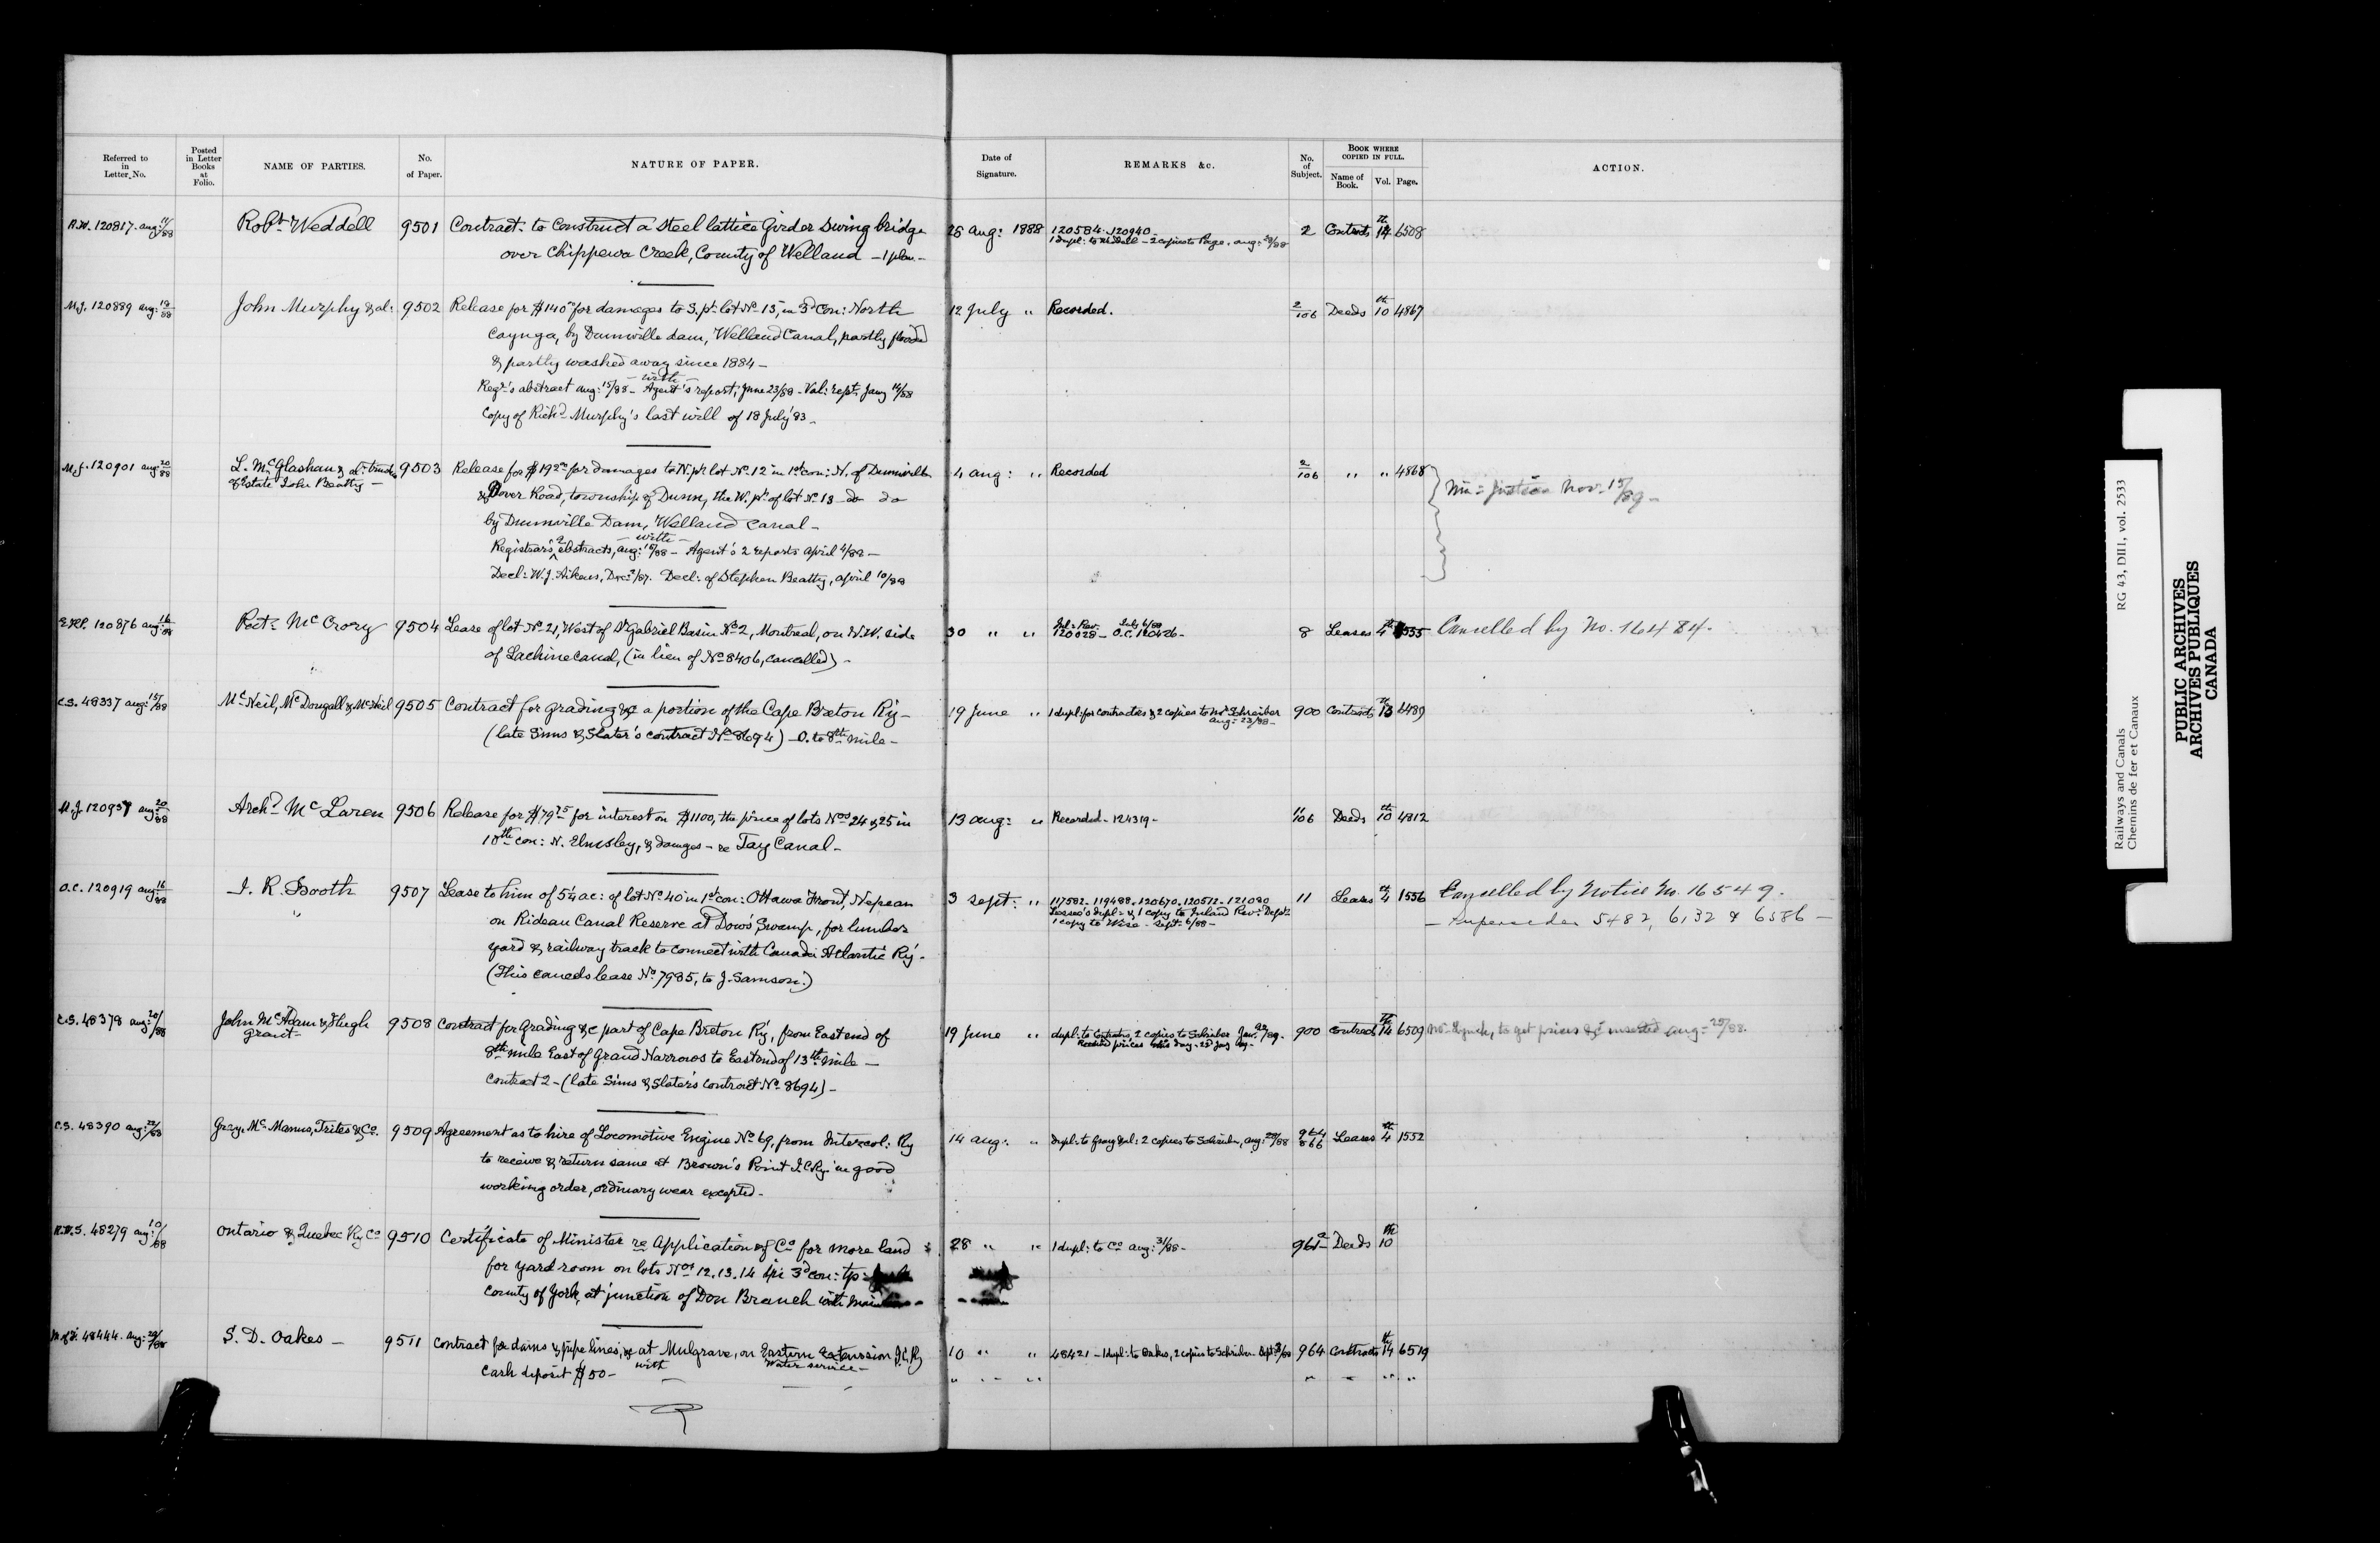 Referred to in Letter No.
Posted in Letter Books at Folio.
NAME OF PARTIES.
No. of Paper.
NATURE OF PAPER.
Date of Signature.
REMARKS &c.
No. of Subject.
BOOK WHERE COPIED IN FULL.
Name of Book.
Vol.
Page.
ACTION.
R.W. 120817. aug: 11/88 Robt Weddell 9501 Contract: to Construct a Steel lattice Girder Swing bridge 26 aug: 1888 120584. 120940 2 Contracts 14th 6508
over Chippewa Creek, County of Welland — 1 plan — 1 dupl: to Weddell — 2 copies to Page. aug: 29/88
M.J. 120889 aug: 18/88 John Murphy & al: 9502 Release for $140 for damages to S. pt lot No 15, in 3d Con: North 12 July " Recorded. 2/106 Deeds 10th 4867
Cayuga, by Dunnville dam, Welland Canal, partly flooded
& partly washed away since 1884 —
— with —
Regr's abstract aug: 15/88 — Agent's report, June 23/88 — Val: rept. Jany 14/88
Copy of Richd Murphy's last will of 18 July '83 —
M.J. 120901 aug: 20/88 L. McGlashan & al: trustees 9503 Release for $192 for damages to N. pt lot No 12 in 1st con: N. of Dunnville 4 aug: " Recorded 2/106 " " 4868
of Estate John Beatty —
& Dover Road, township of Dunn, the W. pt. of lot No 13 do do Min: Justice Nov. 15/89 —
by Dunnville Dam, Welland Canal —
— with —
Registrar's 2 abstracts, aug: 16/88 — Agent's 2 reports April 4/88 —
Decl: W.J. Aikens, Dec: 2/87. Decl: of Stephen Beatty, april 10/88
120876 aug: 16/88 Robt McCrory 9504 Lease of lot No 21, West of St Gabriel Basin No 2, Montreal, on N.W. side 30 " " Inl: Rev: July 6/88 8 Leases 4th 1555 Cancelled by No. 16484.
of Lachine Canal, (in lieu of No 8406, cancelled) — 120628 — O.C. 120426 —
C.S. 48337 aug: 15/88 McNeil, McDougall & McNeil 9505 Contract for grading &c a portion of the Cape Breton Ry — 19 June " 1 dupl: for contractors & 2 copies to Mr Schreiber 900 Contracts 13th 6489
(late Sims & Slater's contract No 8694) — 0. to 8th mile — aug: 23/88 —
M.J. 120957 aug: 20/88 Archd McLaren 9506 Release for $79 75 for interest on $1100, the price of lots Nos 24 & 25 in 13 aug: " Recorded — 124319 — 11/106 Deeds 10th 4812
10th con: N. Elmsley, & damages — re Tay Canal —
O.C. 120919 aug: 16/88 J. R. Booth 9507 Lease to him of 5¼ ac: of lot No 40 in 1st con: Ottawa Front, Nepean 3 Sept: " 117582. 119488. 120670. 120572. 121080 11 Leases 4th 1556 Cancelled by Notice No. 16549.
on Rideau Canal Reserve at Dow's Swamp, for lumber Lessee's dupl: & 1 copy to Inland Rev: Dept — Supersedes 5482, 6132 & 6586 —
yard & railway track to connect with Canada Atlantic Ry — 1 copy to Wise — Sept: 6/88 —
(This cancels lease No 7985, to J. Samson.)
C.S. 48378 aug: 20/88 John McAdam & Hugh 9508 Contract for Grading &c part of Cape Breton Ry, from East end of 19 June " dupl: to Contrators 2 copies to Schreiber Jan: 22/89. 900 Contracts 14th 6509 Mr Lynch, to get prices &c inserted aug: 25/88.
Grant —
8th mile East of Grand Narrows to East end of 13th mile — Received prices this day. 23d Jany 89 —
Contract 2 — (late Sims & Slater's contract No 8694) —
C.S. 48390 aug: 22/88 Gray, McManus, Trites & Co. 9509 Agreement as to hire of Locomotive Engine No 69, from Intercol: Ry 14 aug: " Dupl: to Gray & al: 2 copies to Schreiber, aug: 29/88 964/866 Leases 4th 1552
to receive & return same at Brown's Point I.C.Ry. in good
working order, ordinary wear excepted —
48279 aug: 10/88 Ontario & Quebec Ry Co 9510 Certificate of Minister re Application of Co for more land 28 " " 1 dupl: to Co aug: 31/88 — 961a Deeds 10th
for yard room on lots Nos 12. 13. 14 in 3d con: tp:
County of York, at junction of Don Branch with Main
48444. aug: 29/88 S. D. Oakes — 9511 Contract for dams & pipe lines, &c at Mulgrave, on Eastern Extension I.C.Ry 10 " " 48421 — 1 dupl: to Oakes, 2 copies to Schreiber Sept: 3/88 964 Contracts 14th 6519
with Water service —
Cash deposit $50 — " " " " " " "
Railways and Canals RG 43, DIII, vol. 2533
Chemins de fer et Canaux
PUBLIC ARCHIVES
ARCHIVES PUBLIQUES
CANADA